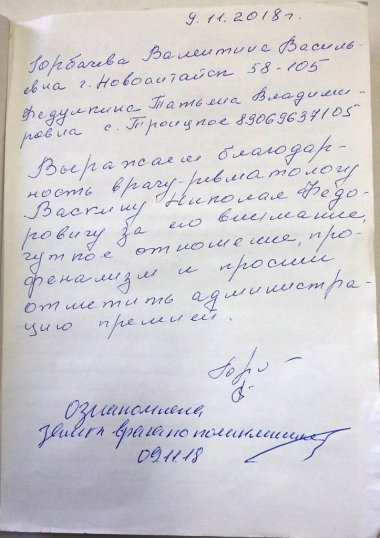 9.11.2018г.
Горбачева Валентина Василь-
евна г. Новоалтайск 58-105
Федулкина Татьяна Владими-
ровна с. Троицкое 89069637105
Выражаем благодар-
ность врачу-ревматологу
Васкину Николаю Федо-
ровичу за его внимание,
чуткое отношение, про-
фенализм и просим
отметить администра-
цию премией.
Горб
Ознакомлена
091118